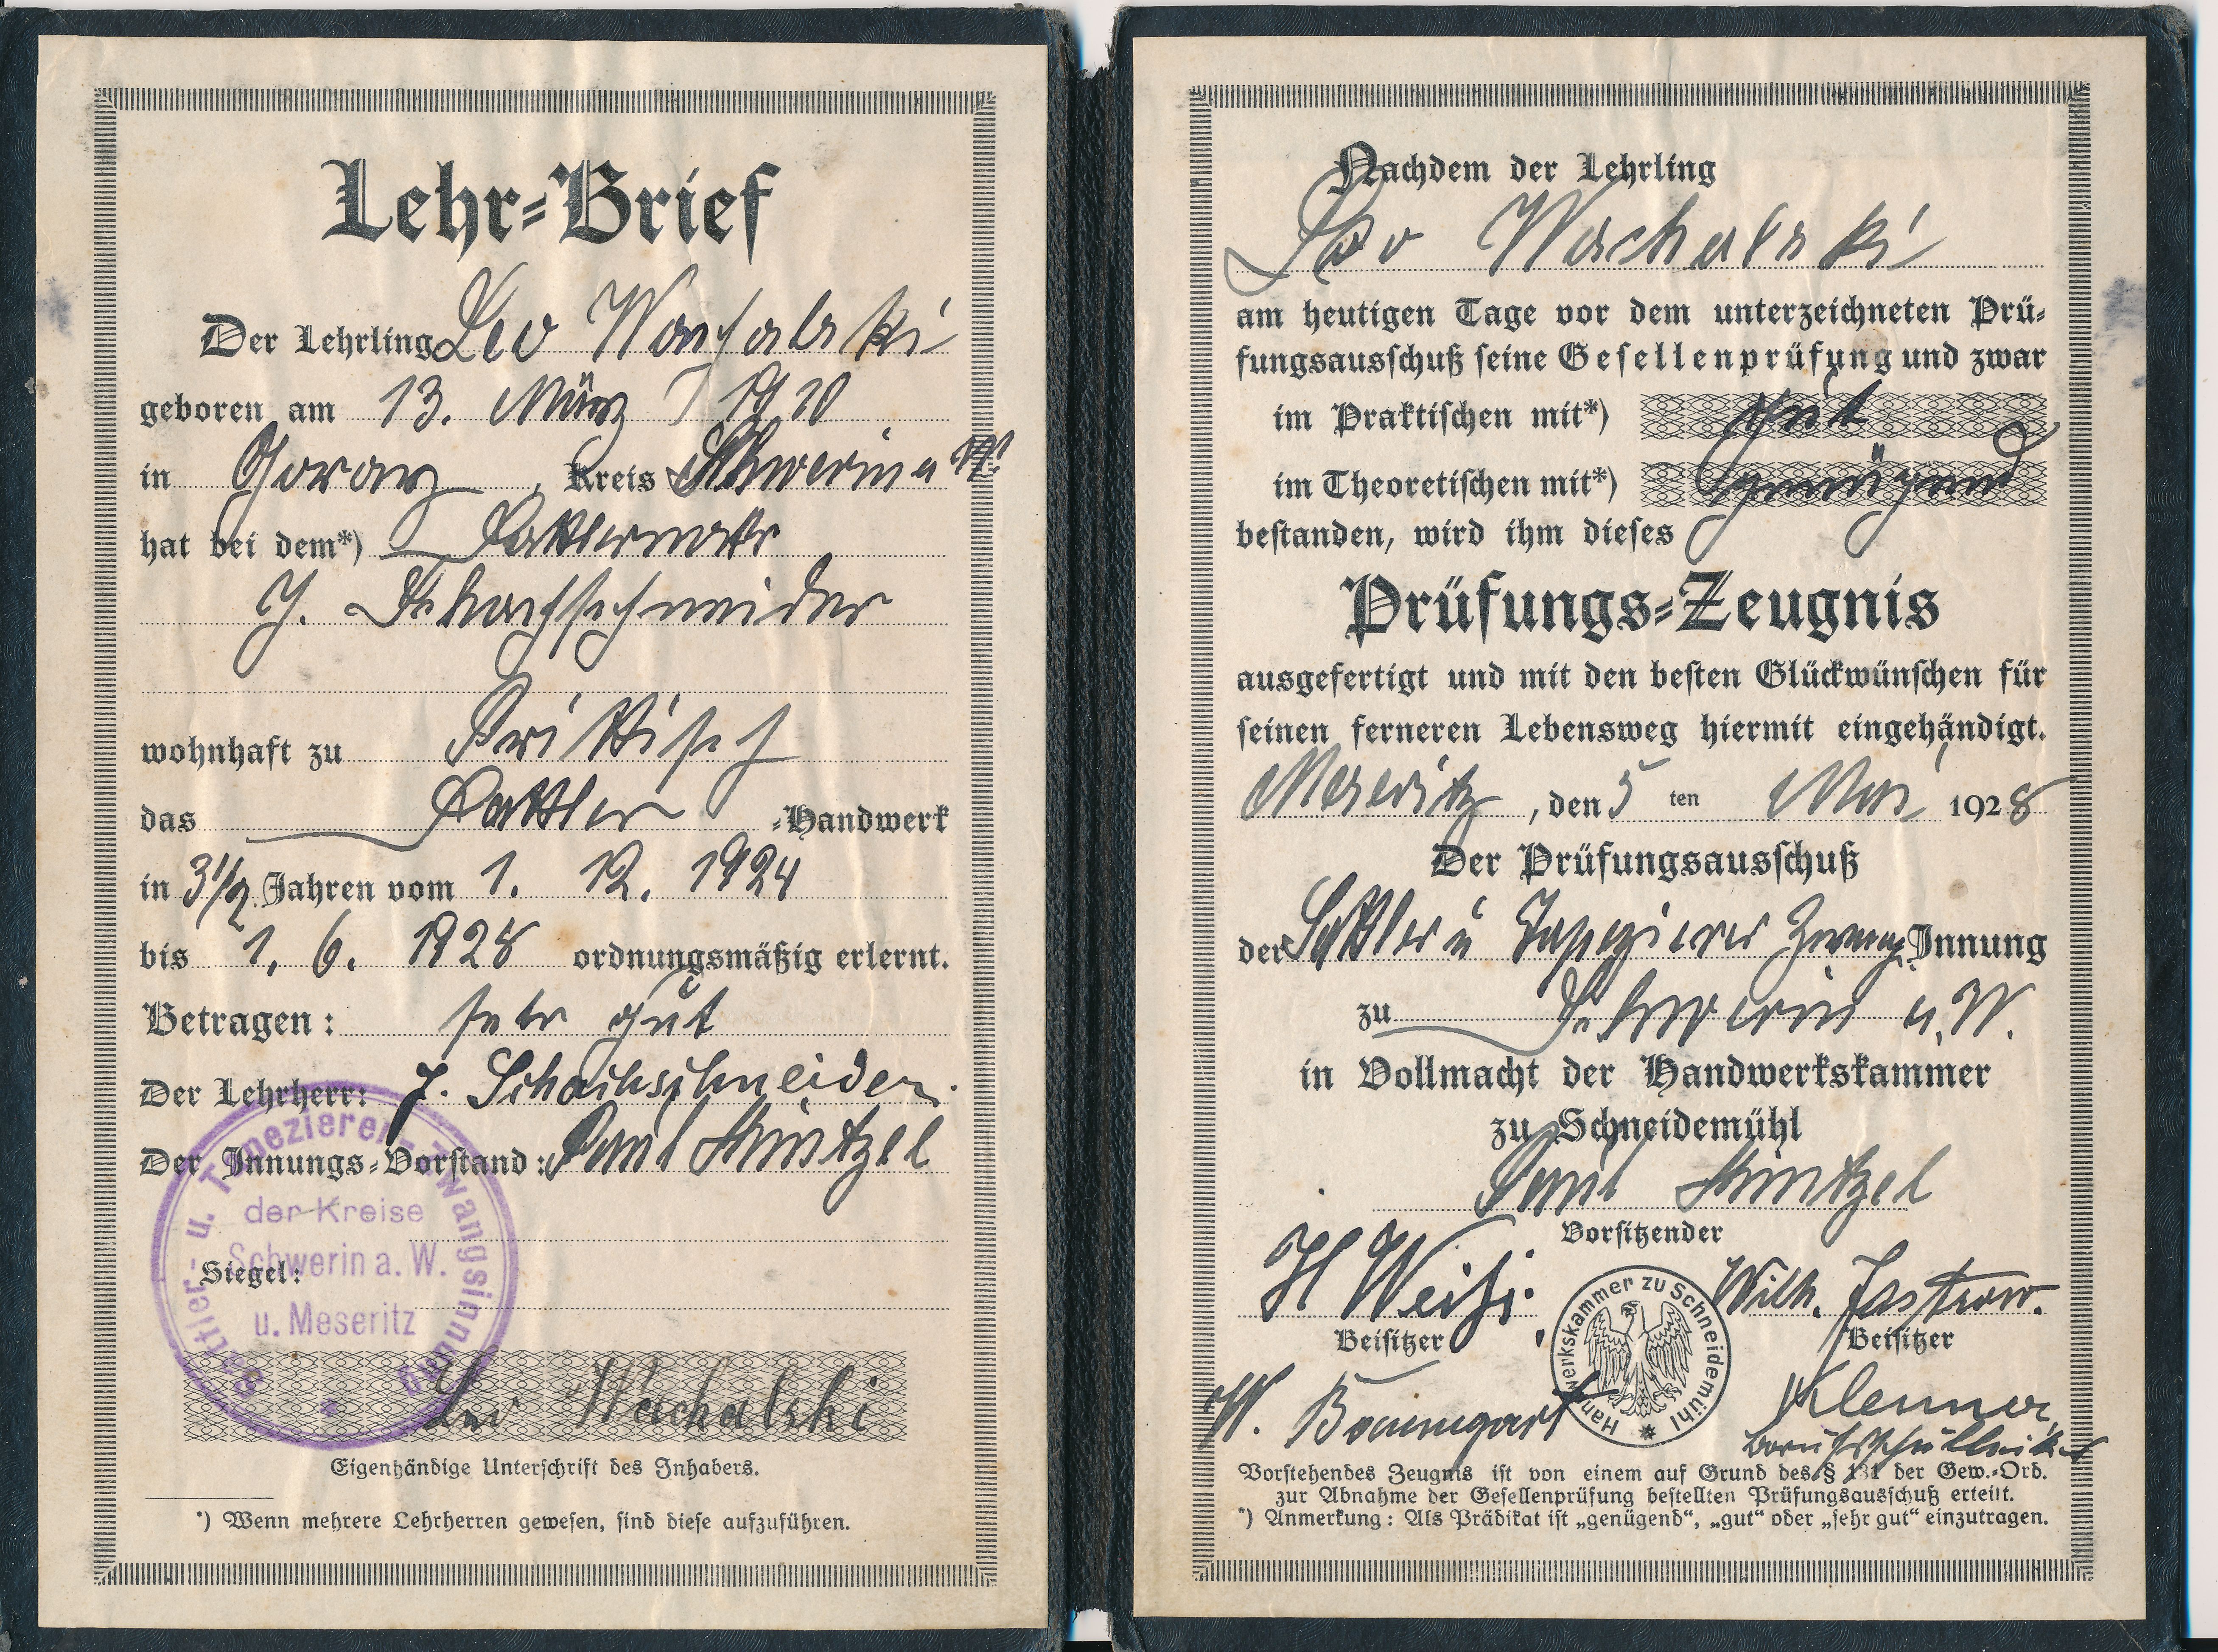 Lehr-Brief
Der Lehrling Leo Wachalski
geboren am 13. März 1910
in Goray, Kreis Schwerin a W.
hat bei dem*) Sattlermstr
J. Schachschneider
wohnhaft zu Prittisch
das Sattler -Handwerk
in 3 1/2 Jahren vom 1. 12. 1924
bis 1. 6. 1928 ordnungsmäßig erlernt.
Betragen: sehr gut
Der Lehrherr: J. Schachschneider.
Der Innungs-Vorstand: Paul Hintzel
Sattler- u. Tapezierer-Zwangsinnung
der Kreise
Schwerin a. W.
u. Meseritz
Siegel:
Leo Wachalski
Eigenhändige Unterschrift des Inhabers.
*) Wenn mehrere Lehrherren gewesen, sind diese aufzuführen.
Nachdem der Lehrling
Leo Wachalski
am heutigen Tage vor dem unterzeichneten Prü-
fungsausschuß seine Gesellenprüfung und zwar
im Praktischen mit*) gut
im Theoretischen mit*) genügend
bestanden, wird ihm dieses
Prüfungs-Zeugnis
ausgefertigt und mit den besten Glückwünschen für
seinen ferneren Lebensweg hiermit eingehändigt.
Meseritz, den 5 ten Mai 1928
Der Prüfungsausschuß
der Sattler u Tapezierer Zwang Innung
zu Schwerin a. W.
in Vollmacht der Handwerkskammer
zu Schneidemühl
Paul Hintzel
Vorsitzender
H Weiß. Wilh. Jastrow.
Beisitzer Beisitzer
Handwerkskammer zu Schneidemühl
W. Baumgart Klemer
Vorstehendes Zeugnis ist von einem auf Grund des § 131 der Gew.-Ord.
zur Abnahme der Gesellenprüfung bestellten Prüfungsausschuß erteilt.
*) Anmerkung: Als Prädikat ist „genügend“, „gut“ oder „sehr gut“ einzutragen.